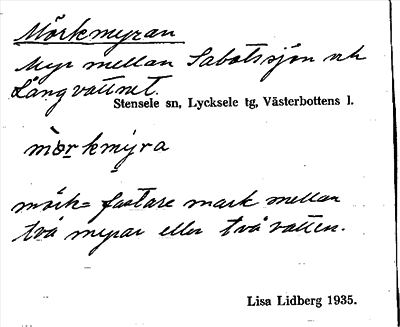 Mörkmyran
Myr mellan Sabotssjön och
Långvattnet.
Stensele sn, Lycksele tg, Västerbottens l.
mörkmýra
mörk= fastare mark mellan
två myrar eller två vatten.
Lisa Lidberg 1935.